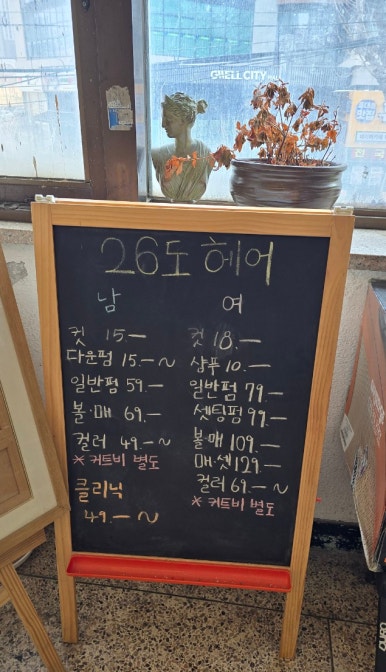 26도 헤어
남
컷 15.—
다운펌 15.—~
일반펌 59.—
볼·매 69.—
컬러 49.—~
※ 커트비 별도
클리닉
49.—~
여
컷 18.—
샴푸 10.—
일반펌 79.—
셋팅펌 99.—
볼매 109.—
매·셋 129.—
컬러 69.—~
※ 커트비 별도